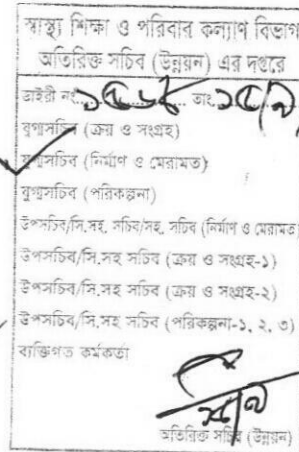 স্বাস্থ্য শিক্ষা ও পরিবার কল্যাণ বিভাগ
অতিরিক্ত সচিব (উন্নয়ন) এর দপ্তরে
ডাইরী নং............ তাং
যুগ্মসচিব (ক্রয় ও সংগ্রহ)
যুগ্মসচিব (নির্মাণ ও মেরামত)
যুগ্মসচিব (পরিকল্পনা)
উপসচিব/সি.সহ. সচিব/সহ. সচিব (নির্মাণ ও মেরামত)
উপসচিব/সি.সহ সচিব (ক্রয় ও সংগ্রহ-১)
উপসচিব/সি.সহ সচিব (ক্রয় ও সংগ্রহ-২)
উপসচিব/সি.সহ সচিব (পরিকল্পনা-১, ২, ৩)
ব্যক্তিগত কর্মকর্তা
অতিরিক্ত সচিব (উন্নয়ন)